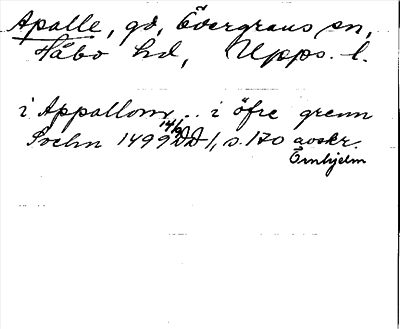 Apalle, gd, Övergrans sn,
Håbo hd, Upps. l.
i Appallom .. i öfre grenn
Sochn 1499 14/9 DD 1, s. 170 avskr.
Örnhjelm